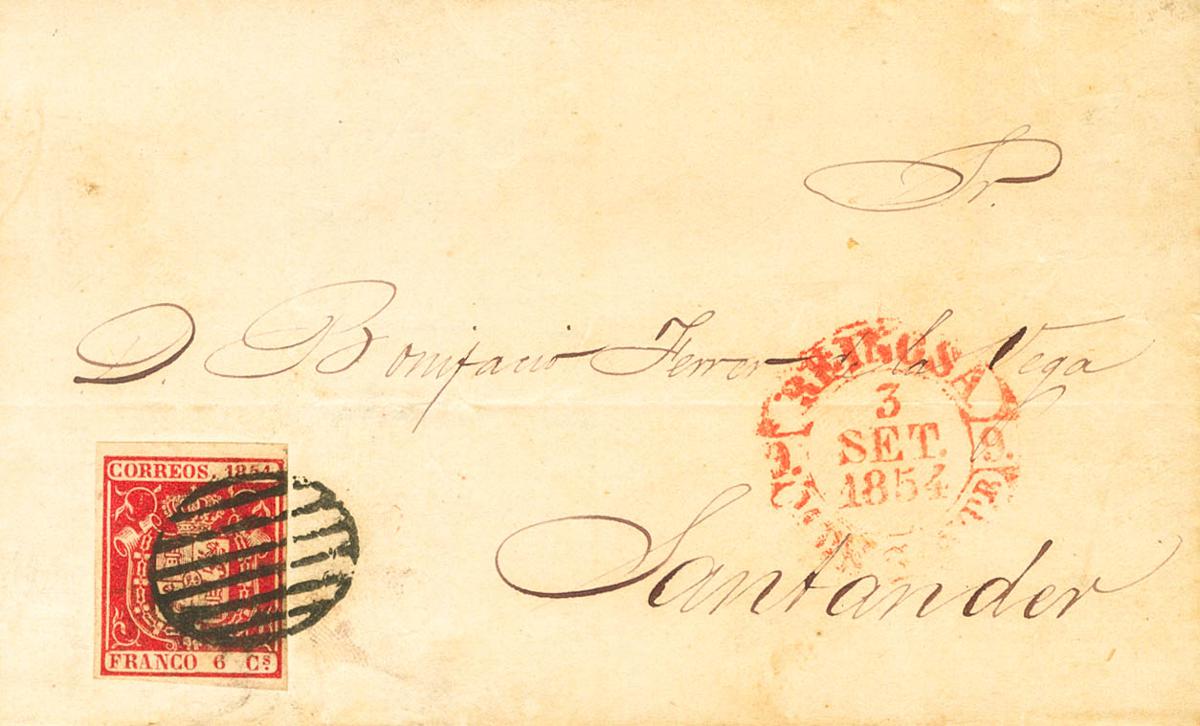 Sr.
D. Bonifacio Ferrer de la Vega
REINOSA
9. 9.
3
SET.
1854
Santander
CORREOS. 1854
FRANCO 6 Cs